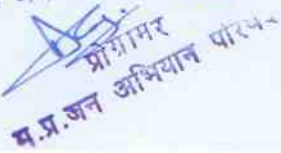 प्रोग्रामर
म.प्र.जन अभियान परिषद